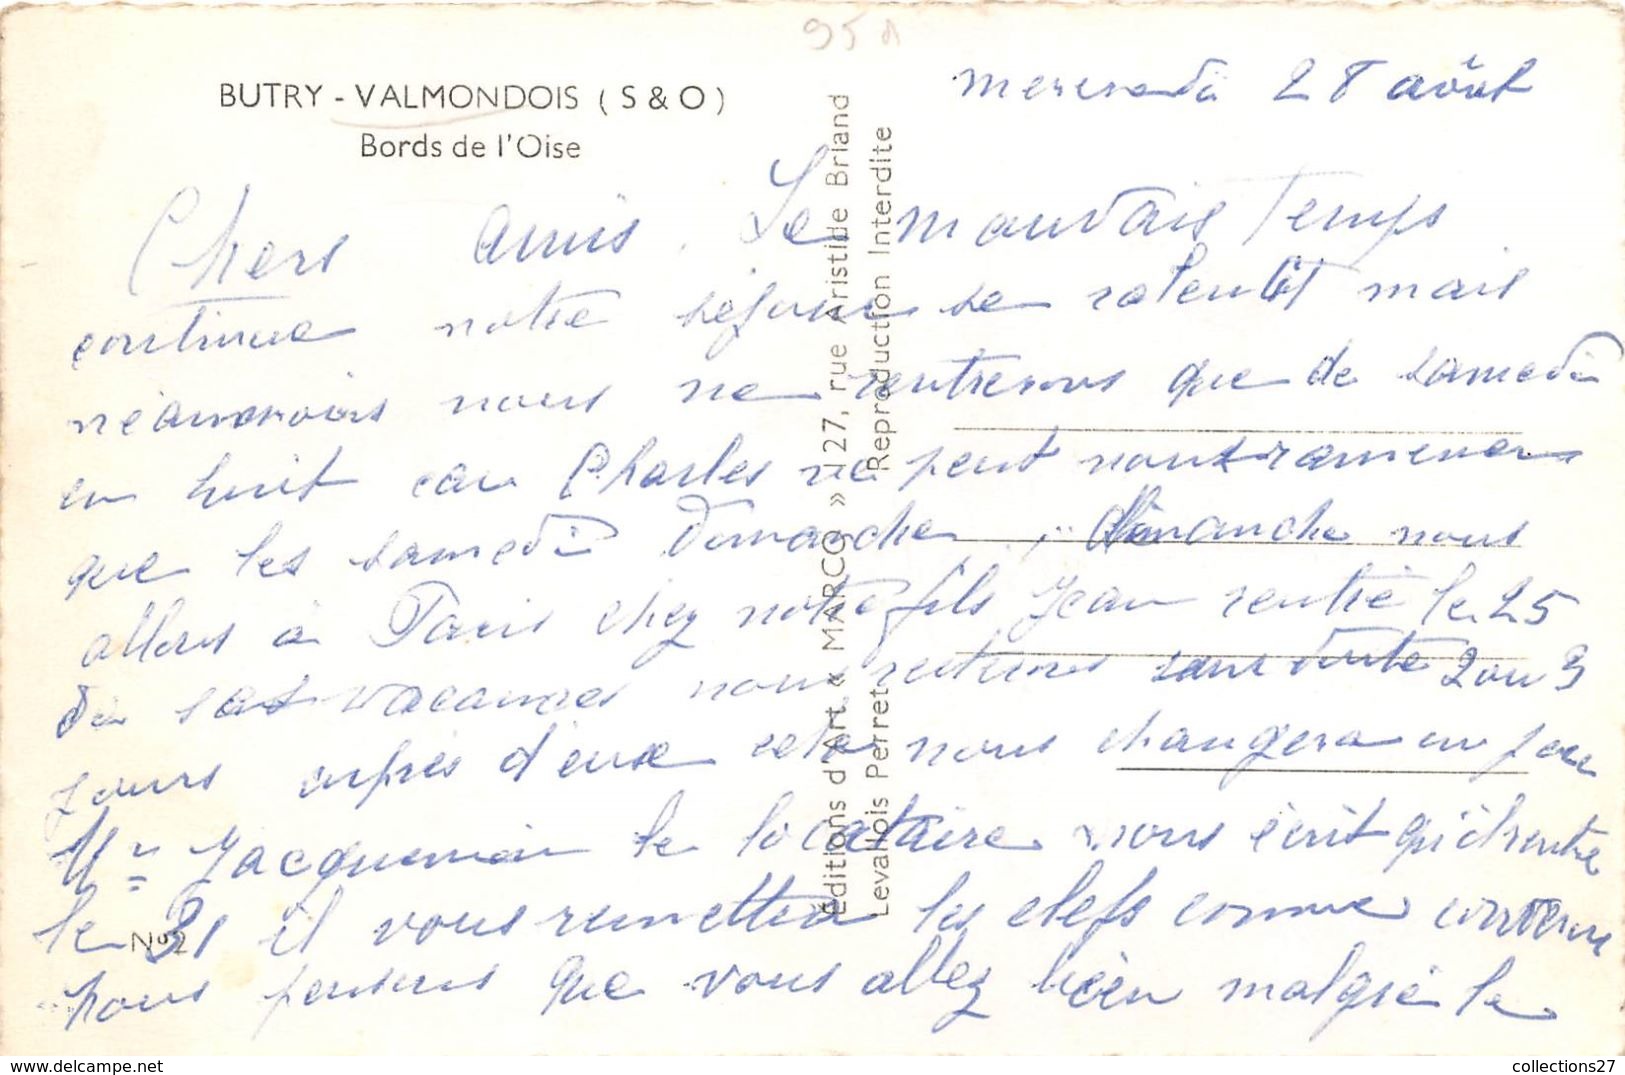 95 A
BUTRY - VALMONDOIS ( S & O )
Bords de l'Oise
Editions d'Art « MARCO » 127, rue Aristide Briand
Levallois Perret Reproduction Interdite
mercredi 28 août
Chers amis. Le mauvais temps
continue notre séjour se ralentit mais
néanmoins nous ne rentrerons que de samedi
en huit car Charles ne peut nous ramener
que les samedi Dimanche, dimanche nous
allons à Paris chez notre fils Jean rentré le 25
de ses vacances nous resterons sans doute 2 ou 3
jours après d'eux cela nous changera un peu
Mr Jacquemin le locataire nous écrit qu'il rentre
le 31 il vous remettra les clefs comme convenu
nous pensons que vous allez bien malgré le
No 2
collections27